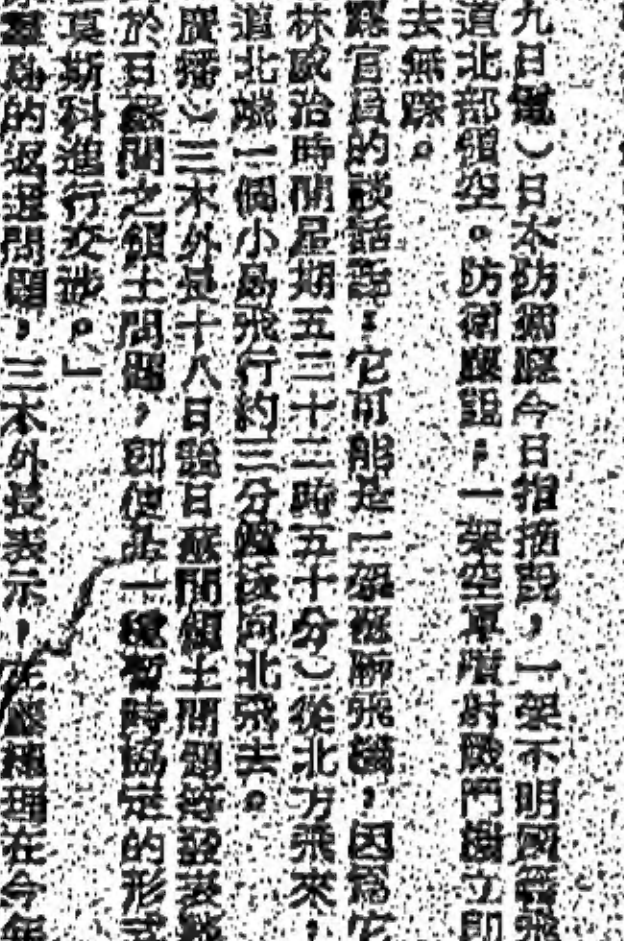 九日電）日本防衛廳今日指摘說，一架不明國籍飛
道北部領空。防衛廳說：一架空軍噴射戰鬥機立即
去無踪。
官員的談話說：它可能是一架偵察飛機，因為它
林威治時間星期五二十三時五十分）從北方飛來，
道北端一個小島飛行約三分鐘後向北飛去。
廣播）三木外長十八日就日蘇間領土問題發表
於日蘇間之領土問題，即使是一種暫時協定的形式
莫斯科進行交涉。」
羣島的返還問題，三木外長表示，在 理在今年